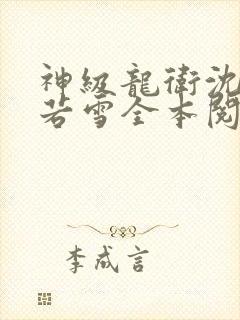 神級龍衛沈
若雪全本閱
李成言